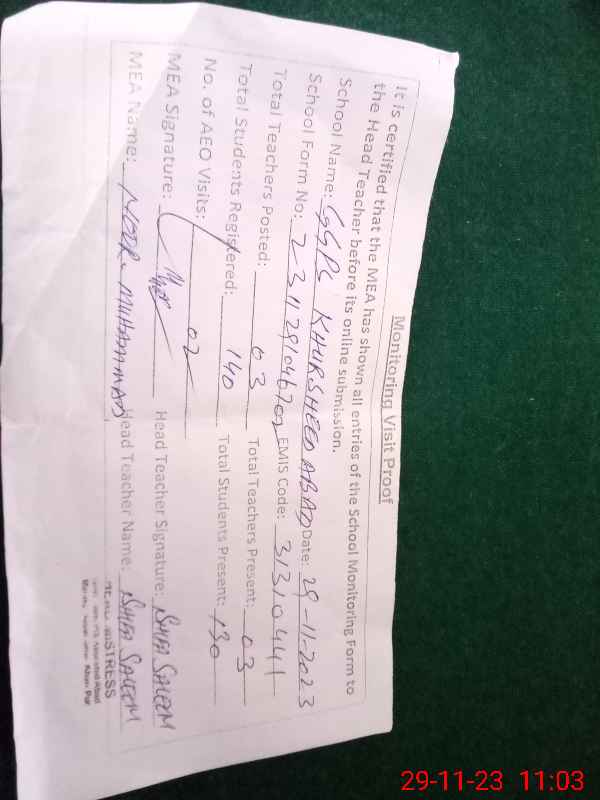 Monitoring Visit Proof
It is certified that the MEA has shown all entries of the School Monitoring Form to
the Head Teacher before its online submission.
School Name: GGPS KHURSHEED ABAD Date: 29-11-2023
School Form No: EMIS Code: 31310441
Total Teachers Posted: 03 Total Teachers Present: 03
Total Students Registered: 140 Total Students Present: 130
No. of AEO Visits: 02
MEA Signature: Head Teacher Signature: SALEEM
MEA Name: NOOR MUHAMMAD Head Teacher Name: SALEEM
MISTRESS
Khan Pur
29-11-23 11:03